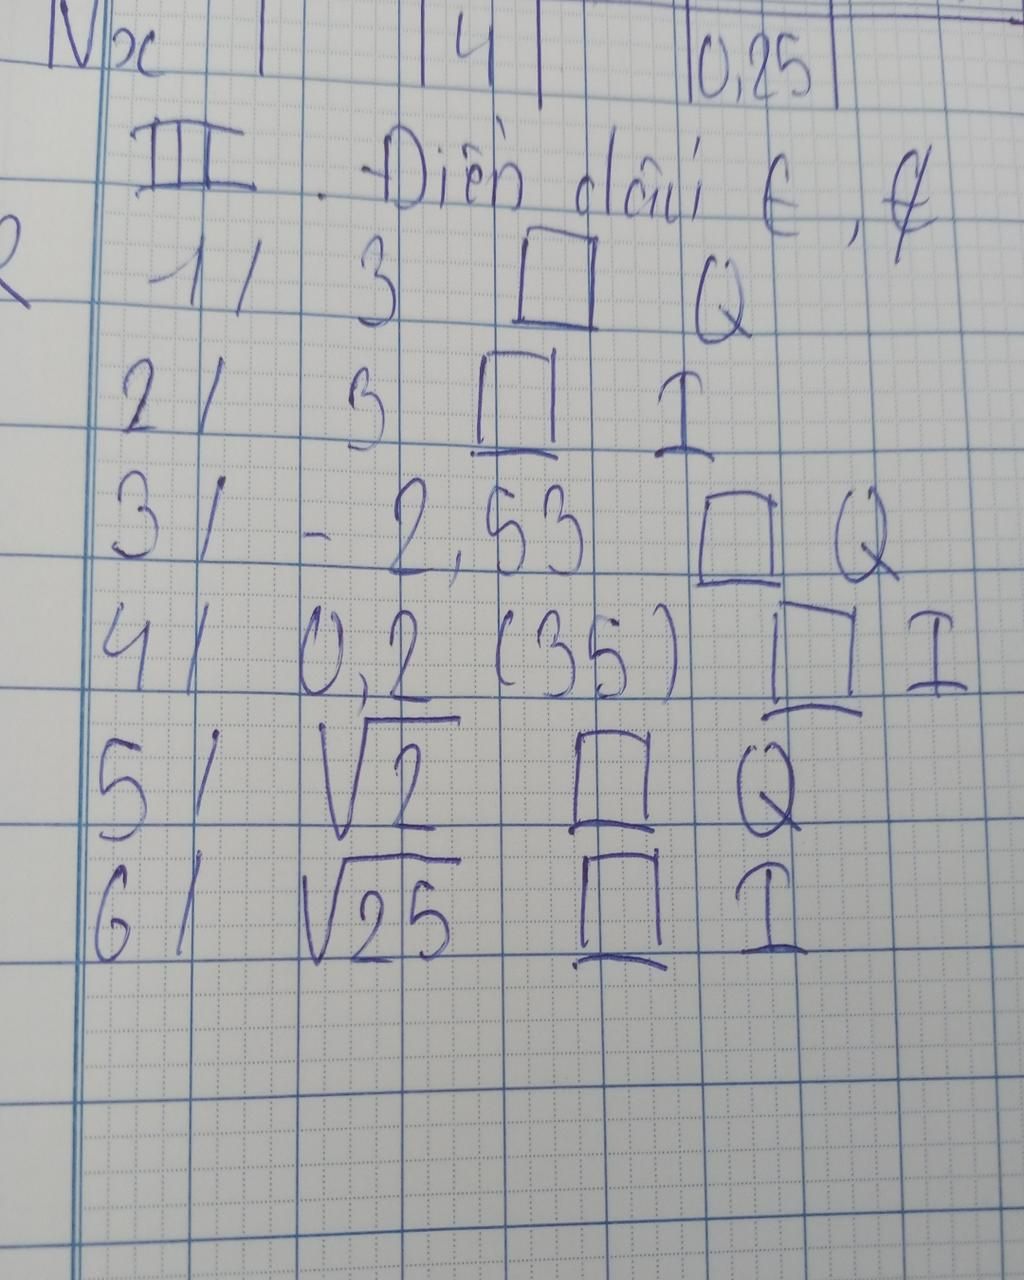 √x | 4 | 0,25
III . Điền dấu ∈ , ∉
1/ 3 □ Q
2/ 3 □ I
3/ - 2,53 □ Q
4/ 0,2 (35) □ I
5/ √2 □ Q
6/ √25 □ I